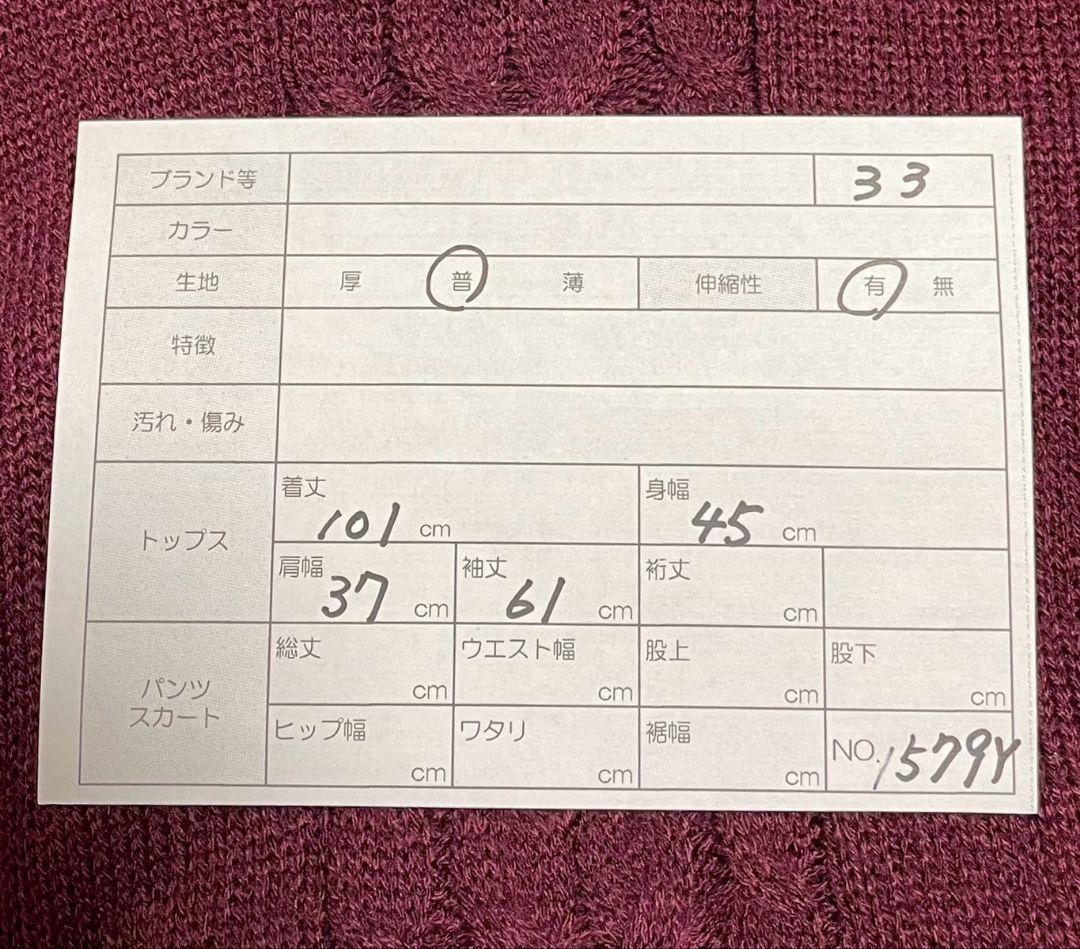 ブランド等 33
カラー
生地 厚 普 薄 伸縮性 有 無
特徴
汚れ・傷み
トップス
着丈 101 cm 身幅 45 cm
肩幅 37 cm 袖丈 61 cm 裄丈 cm
パンツ
スカート
総丈 cm ウエスト幅 cm 股上 cm 股下 cm
ヒップ幅 cm ワタリ cm 裾幅 cm NO. 1579Y